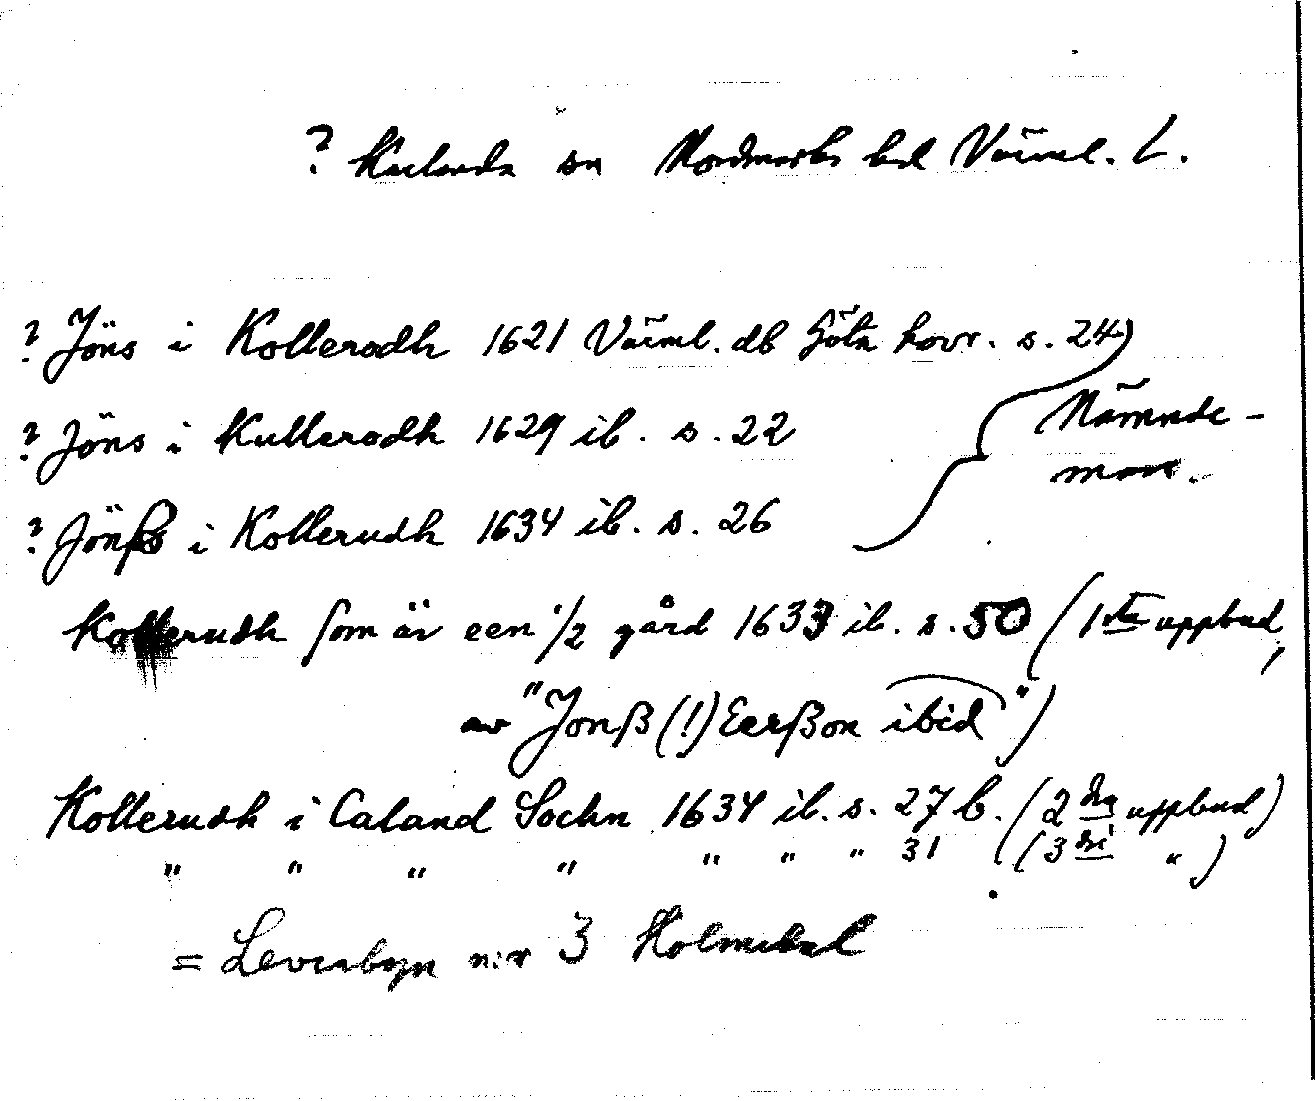 ? Karlanda sn Nordmarks hd Värml. L.
? Jöns i Kollerodh 1621 Värml. db Göta hovr. s. 24
? Jöns i Kullerodh 1629 ib. s. 22
Nämnde-
man.
? Jönß i Kollerudh 1634 ib. s. 26
Kollerudh som är een 1/2 gård 1633 ib. s. 50 (1sta uppbud,
av "Jonß (!) Eerßon ibid")
Kollerudh i Caland Sochn 1634 ib. s. 27 b. (2dra uppbud)
" " " " " " " 31 (3dri ")
= Levenbyn n:r 3 Holmedal